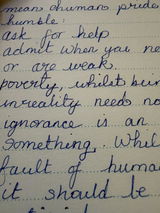 means human pride
humble:
ask for help
admit when you ne
or are weak.
poverty, whilst bur
inreality needs no
ignorance is an
something. Whil
fault of huma
it should be